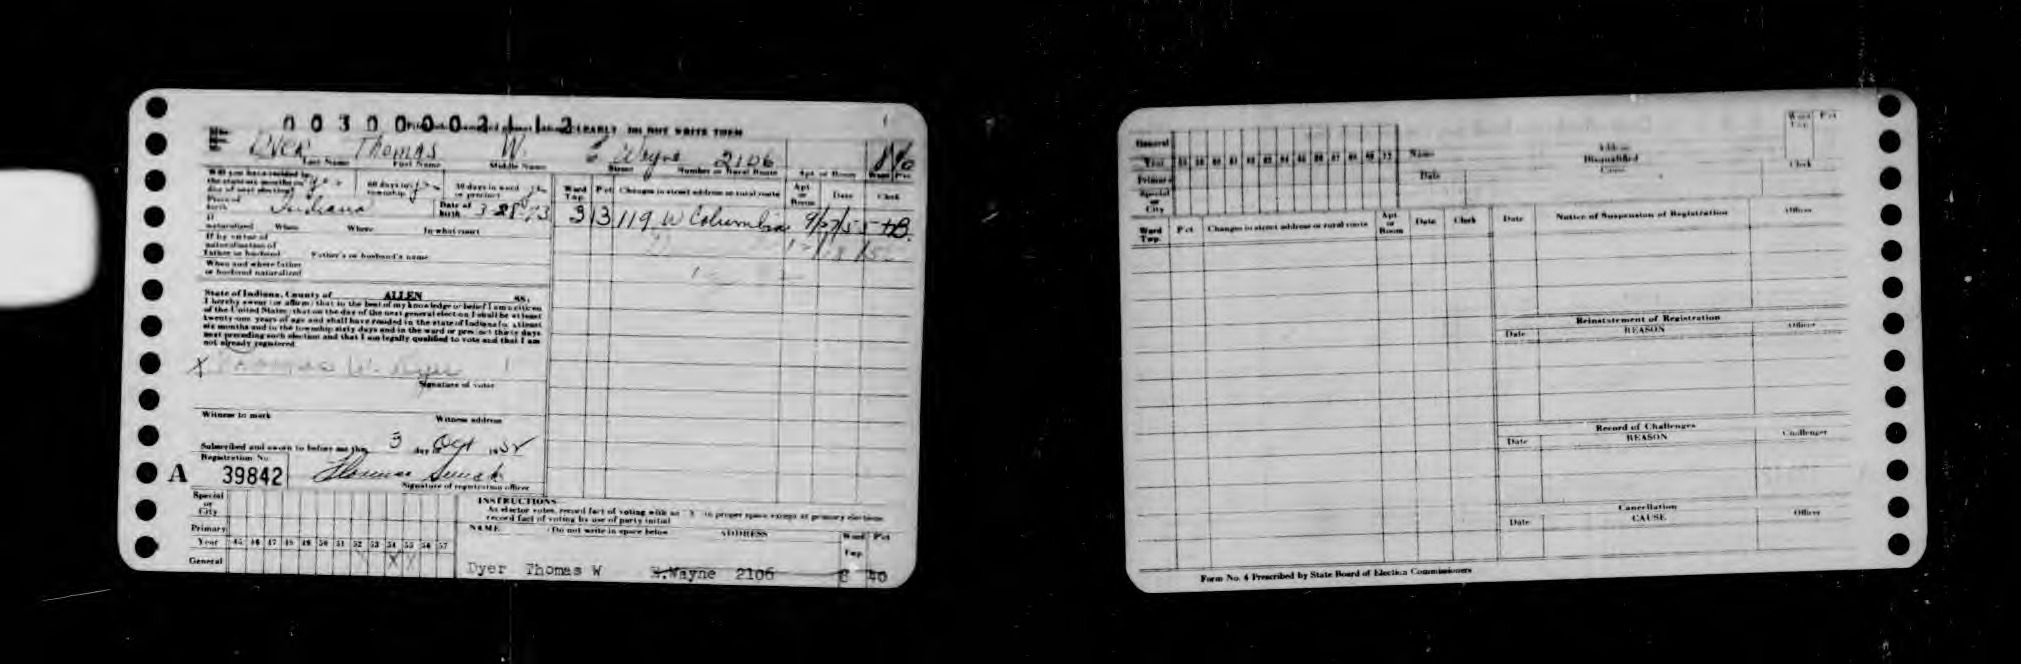 0 0 3 0 0 0 0 0 2 1 1 2 CLEARLY DO NOT WRITE THEM
Dyer Thomas W. Wayne 2106
Last Name First Name Middle Name Street Number or Rural Route Apt. or Room Ward Pct
Will you have resided in
the state six months on yes 60 days in township 30 days in ward or precinct
day of next election?
Ward Twp. Pct Changes in street address or rural route Apt. or Room Date Clerk
Place of birth Indiana Date of birth
3 13 119 W Columbia 9/27/55
If naturalized When Where In what court
If by virtue of
naturalization of
Father or husband Father's or husband's name
When and where father
or husband naturalized
State of Indiana, County of ALLEN ss.
I hereby swear (or affirm) that to the best of my knowledge or belief I am a citizen
of the United States; that on the day of the next general election I shall be at least
twenty-one years of age and shall have resided in the state of Indiana for at least
six months and in the township sixty days and in the ward or precinct thirty days
next preceding such election and that I am legally qualified to vote and that I am
not already registered
X Thomas W. Dyer
Signature of voter
Witness to mark Witness address
Subscribed and sworn to before me this 3 day of Oct 1952
Registration No.
A 39842 Thomas
Signature of registration officer
Special or City
Primary
Year 45 46 47 48 49 50 51 52 53 54 55 56 57
General X X
INSTRUCTIONS
As elector votes, record fact of voting with an X in proper space except at primary elections
record fact of voting by use of party initial
NAME (Do not write in space below) ADDRESS Ward Twp. Pct
Dyer Thomas W W.Wayne 2106 40
General
Year
Primary
Special or City
Name
Date
Disqualified
Cause
Clerk
Ward Twp. Pct
Ward Twp. Pct Changes in street address or rural route Apt. or Room Date Clerk
Date Notice of Suspension of Registration Officer
Reinstatement of Registration
Date REASON Officer
Record of Challenges
Date REASON Challenger
Cancellation
Date CAUSE Officer
Form No. 4 Prescribed by State Board of Election Commissioners